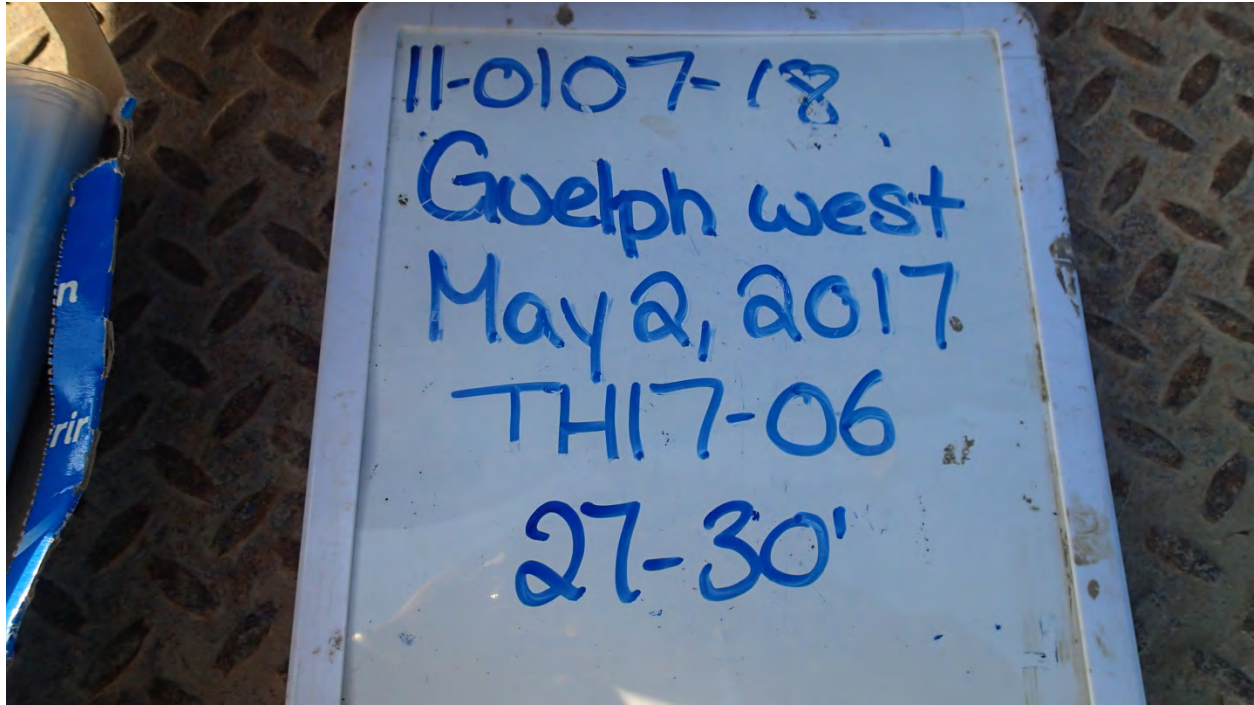 11-0107-18
Guelph west
May 2, 2017
TH17-06
27-30'
n
rir